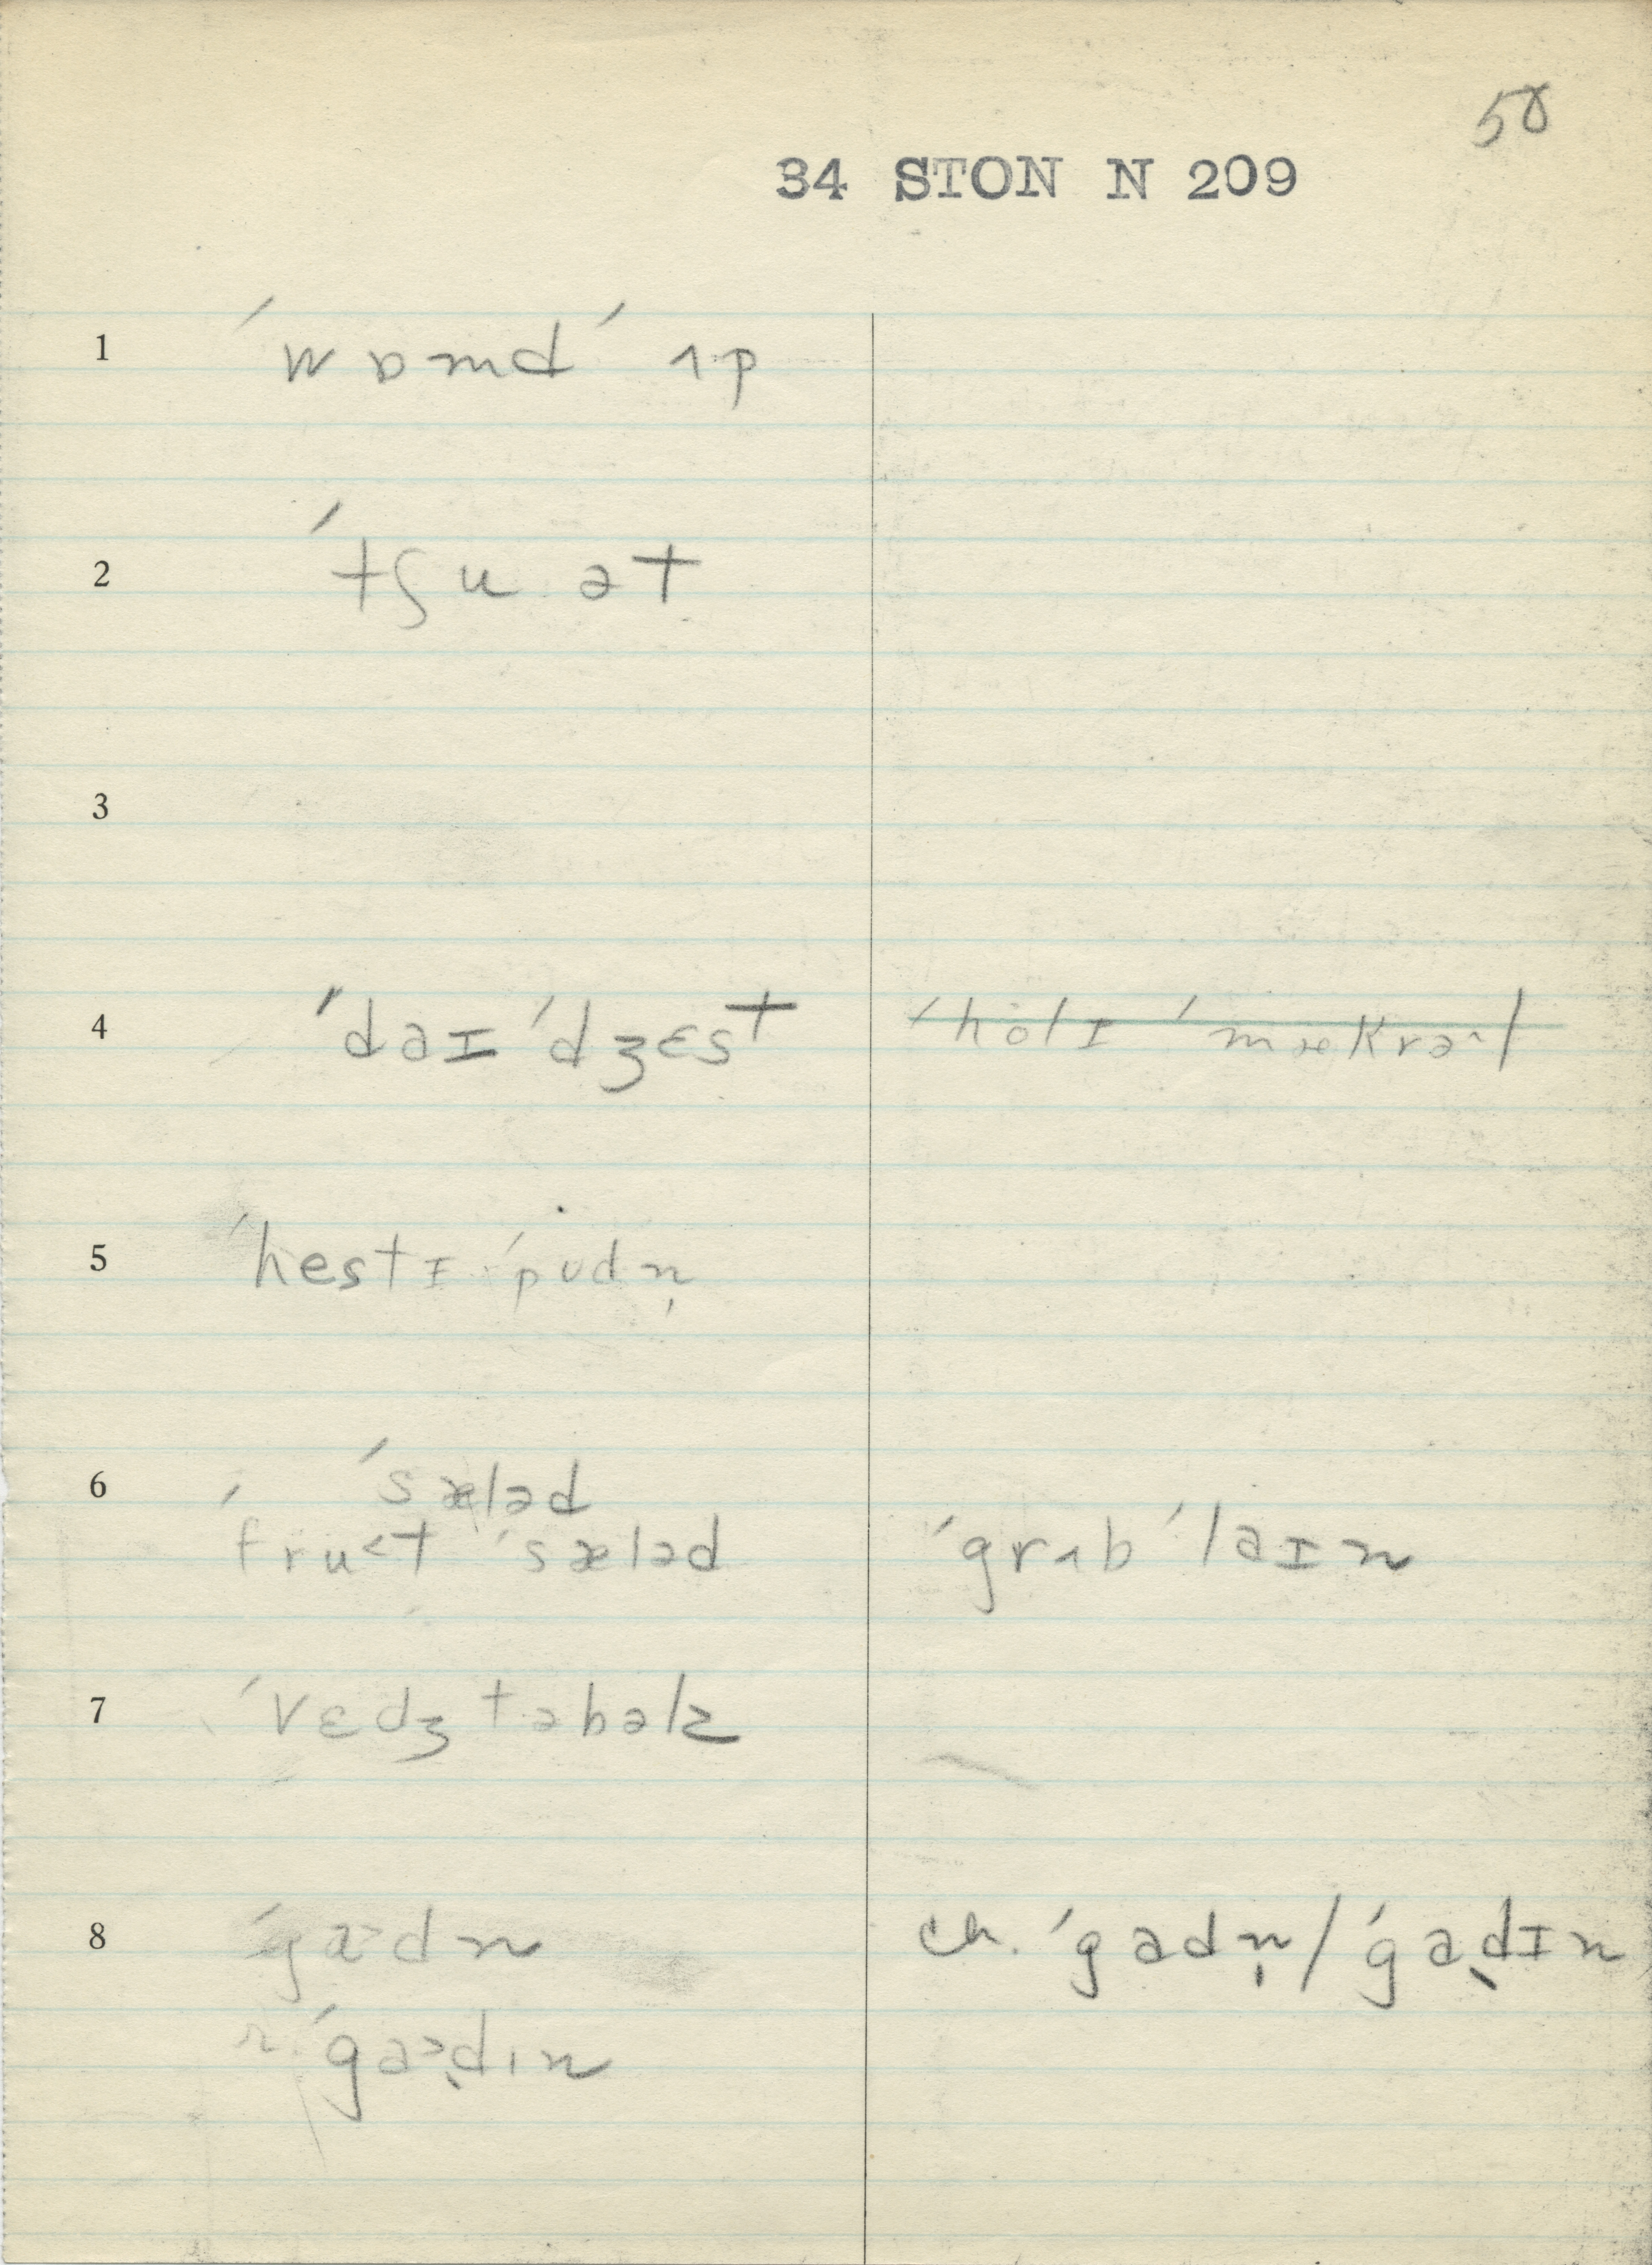 58
34 STON N 209
1 ˈwɒmd ˈʌp
2 ˈtʃu ət
3
4 ˈdaɪˈdʒɛst ˈholɪ ˈmækrəl
5 ˈhestɪ ˈpʊdn̩
6 ˈsæləd
ˈfru<t ˈsæləd ˈgrʌbˈlaɪn
7 ˈvɛdʒtəbəlz
8 ˈga>dn ch. ˈgadn̩/ˈgadɪn
r. ˈga>dɪn